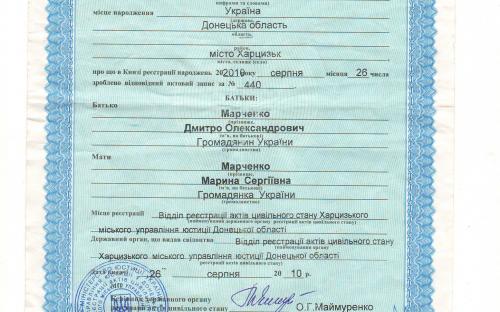 цифрами та словами)
місце народження Україна
(держава,
Донецька область
область,
район,
місто Харцизьк
місто, селище (село)
про що в Книзі реєстрації народжень 20 2010 року серпня місяця 26 числа
зроблено відповідний актовий запис за № 440
БАТЬКИ:
Батько
Марченко
(прізвище,
Дмитро Олександрович
ім'я, по батькові)
Громадянин України
(громадянство)
Мати
Марченко
(прізвище,
Марина Сергіївна
ім'я, по батькові)
Громадянка України
(громадянство)
Місце реєстрації Відділ реєстрації актів цивільного стану Харцизького
(найменування державного органу
міського управління юстиції Донецької області
реєстрації актів цивільного стану)
Державний орган, що видав свідоцтво Відділ реєстрації актів цивільного стану
(найменування державного органу
Харцизького міського управління юстиції Донецької області
реєстрації актів цивільного стану)
Дата видачі 26 серпня 20 10 р.
Керівник державного органу
реєстрації актів цивільного стану О.Г.Маймуренко